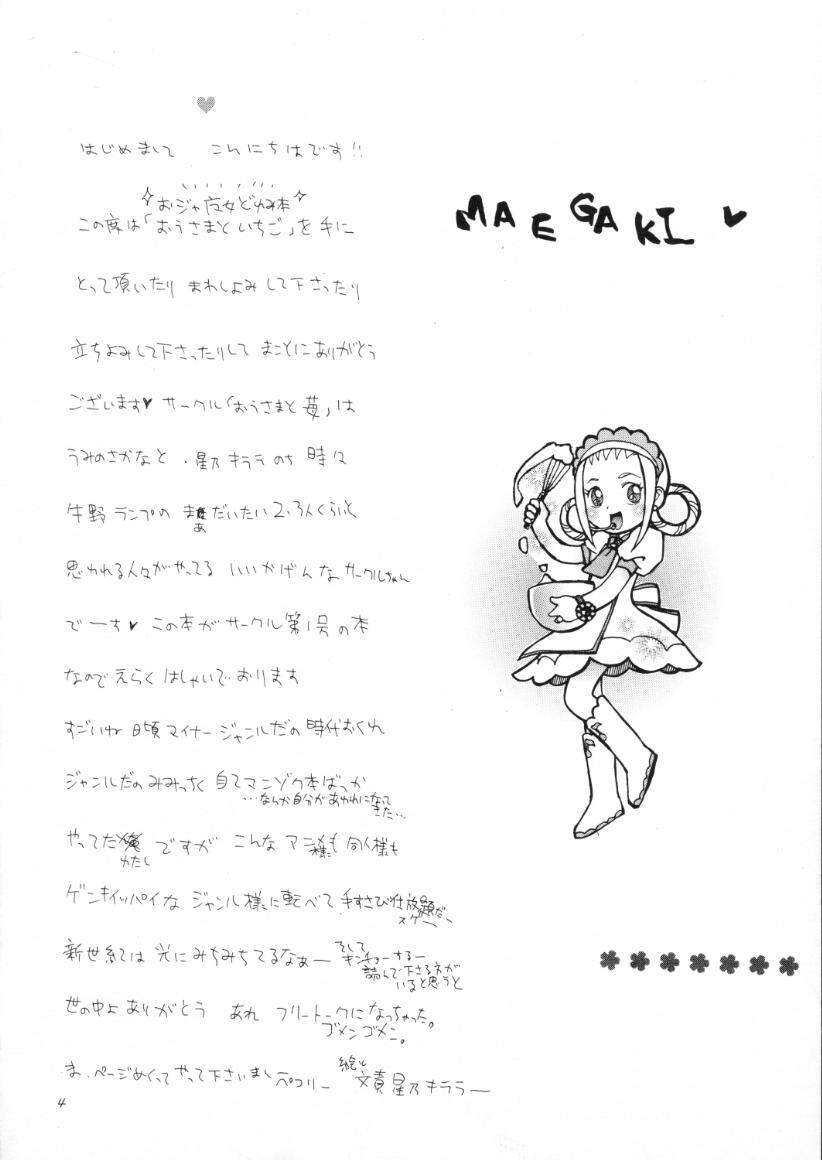 はじめまして こんにちはです!!
おジャ魔女どれみ本
この度は「おうさまといちご」を手に
とって頂いたり まわしよみして下さったり
立ちよみして下さったりして まことにありがとう
ございます♥ サークル「おうさまと苺」は
うみのさかなと、星乃キララ のち 時々
牛野ランプの まぁだいたい2.3人くらいと
思われる人々がやってる いいかげんな サークルちゃん
でーす♥ この本がサークル第1号の本
なので えらく はしゃいで おります
すごいね 日頃マイナージャンルだの 時代おくれ
ジャンルだの みみっちく 自己マンゾク本ばっか
…なんか自分があわれになってきた…
やってた わたし ですが こんな アニメ様も 同人様も
ゲンキイッパイな ジャンル様に転べて 手すさび仕放題だー
スゲー
新世紀は 光にみちみちてるなぁー
そして キンチョーするー
読んで下さる方が
いると思うと
世の中よ ありがとう あれ フリートークになっちゃった。
ゴメンゴメン。
ま、ページめくって やって下さいまし ペコリー
絵と
文責 星乃キララー
4
MAEGAKI ♥